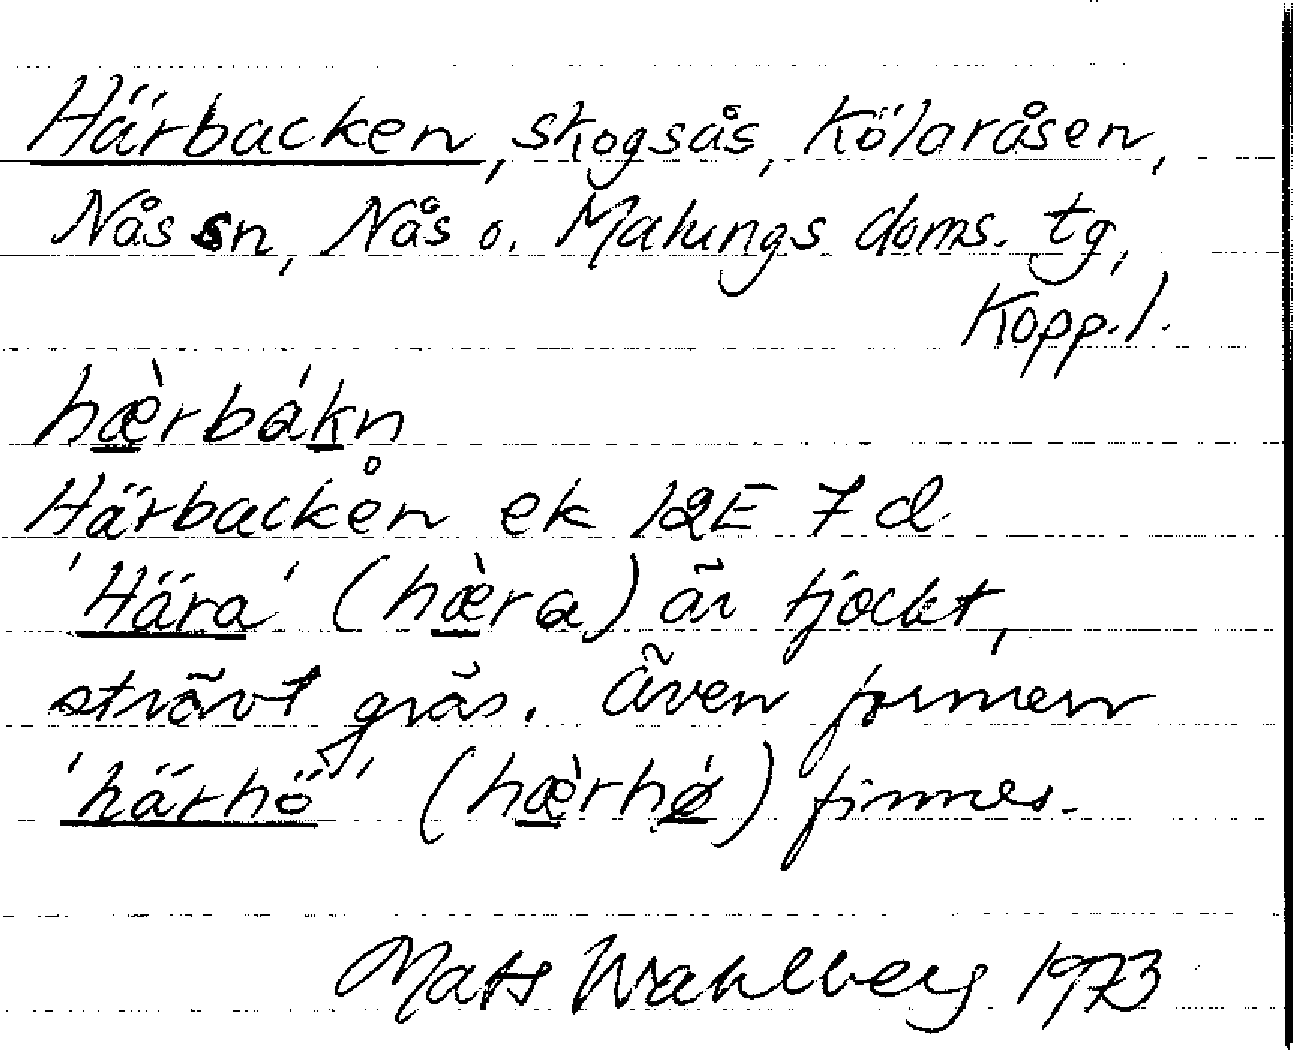 Härbacken, skogsås, Kölaråsen,
Nås sn, Nås o. Malungs doms. tg,
Kopp. l.
hæ̀rbákn
Härbacken ek 12E 7d
'Hära' (hæ̀ra) är tjockt,
strävt gräs. Även formen
'härhö' (hæ̀rhǿ) finnes.
Mats Wahlberg 1973